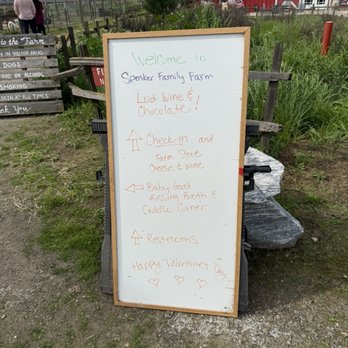 Welcome to
Spenker Family Farm
Lodi Wine &
Chocolate!
Check-in and
Farm Store
Cheese & Wine
Baby Goat
Kissing Booth &
Cuddle Corner
Restrooms
Happy Valentine's Day
to the Farm
DOGS
OD OR ALCOHOL
SMOKING
IN AT ALL TIMES